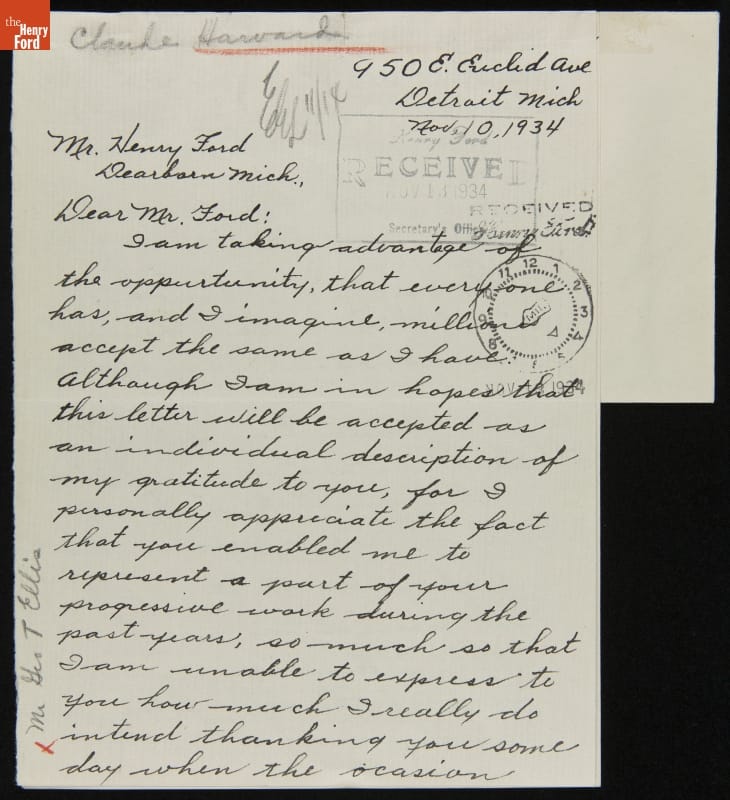 the
Henry
Ford
Claude Harvard
950 E. Euclid Ave
Detroit Mich
Nov, 10, 1934
Mr. Henry Ford
Dearborn Mich.,
Henry Ford
RECEIVED
NOV 13 1934
Secretary's Office
RECEIVED
Henry Ford
12 1 2 3 4 5 6 8 9 10 11
NOV 1934
Dear Mr. Ford:
I am taking advantage of
the oppurtunity, that every one
has, and I imagine, millions
accept the same as I have.
Although I am in hopes that
this letter will be accepted as
an individual description of
my gratitude to you, for I
personally appriciate the fact
that you enabled me to
represent a part of your
progressive work during the
past years, so much so that
I am unable to express to
you how much I really do
intend thanking you some
day when the ocasion
x Mr Geo T Ellis